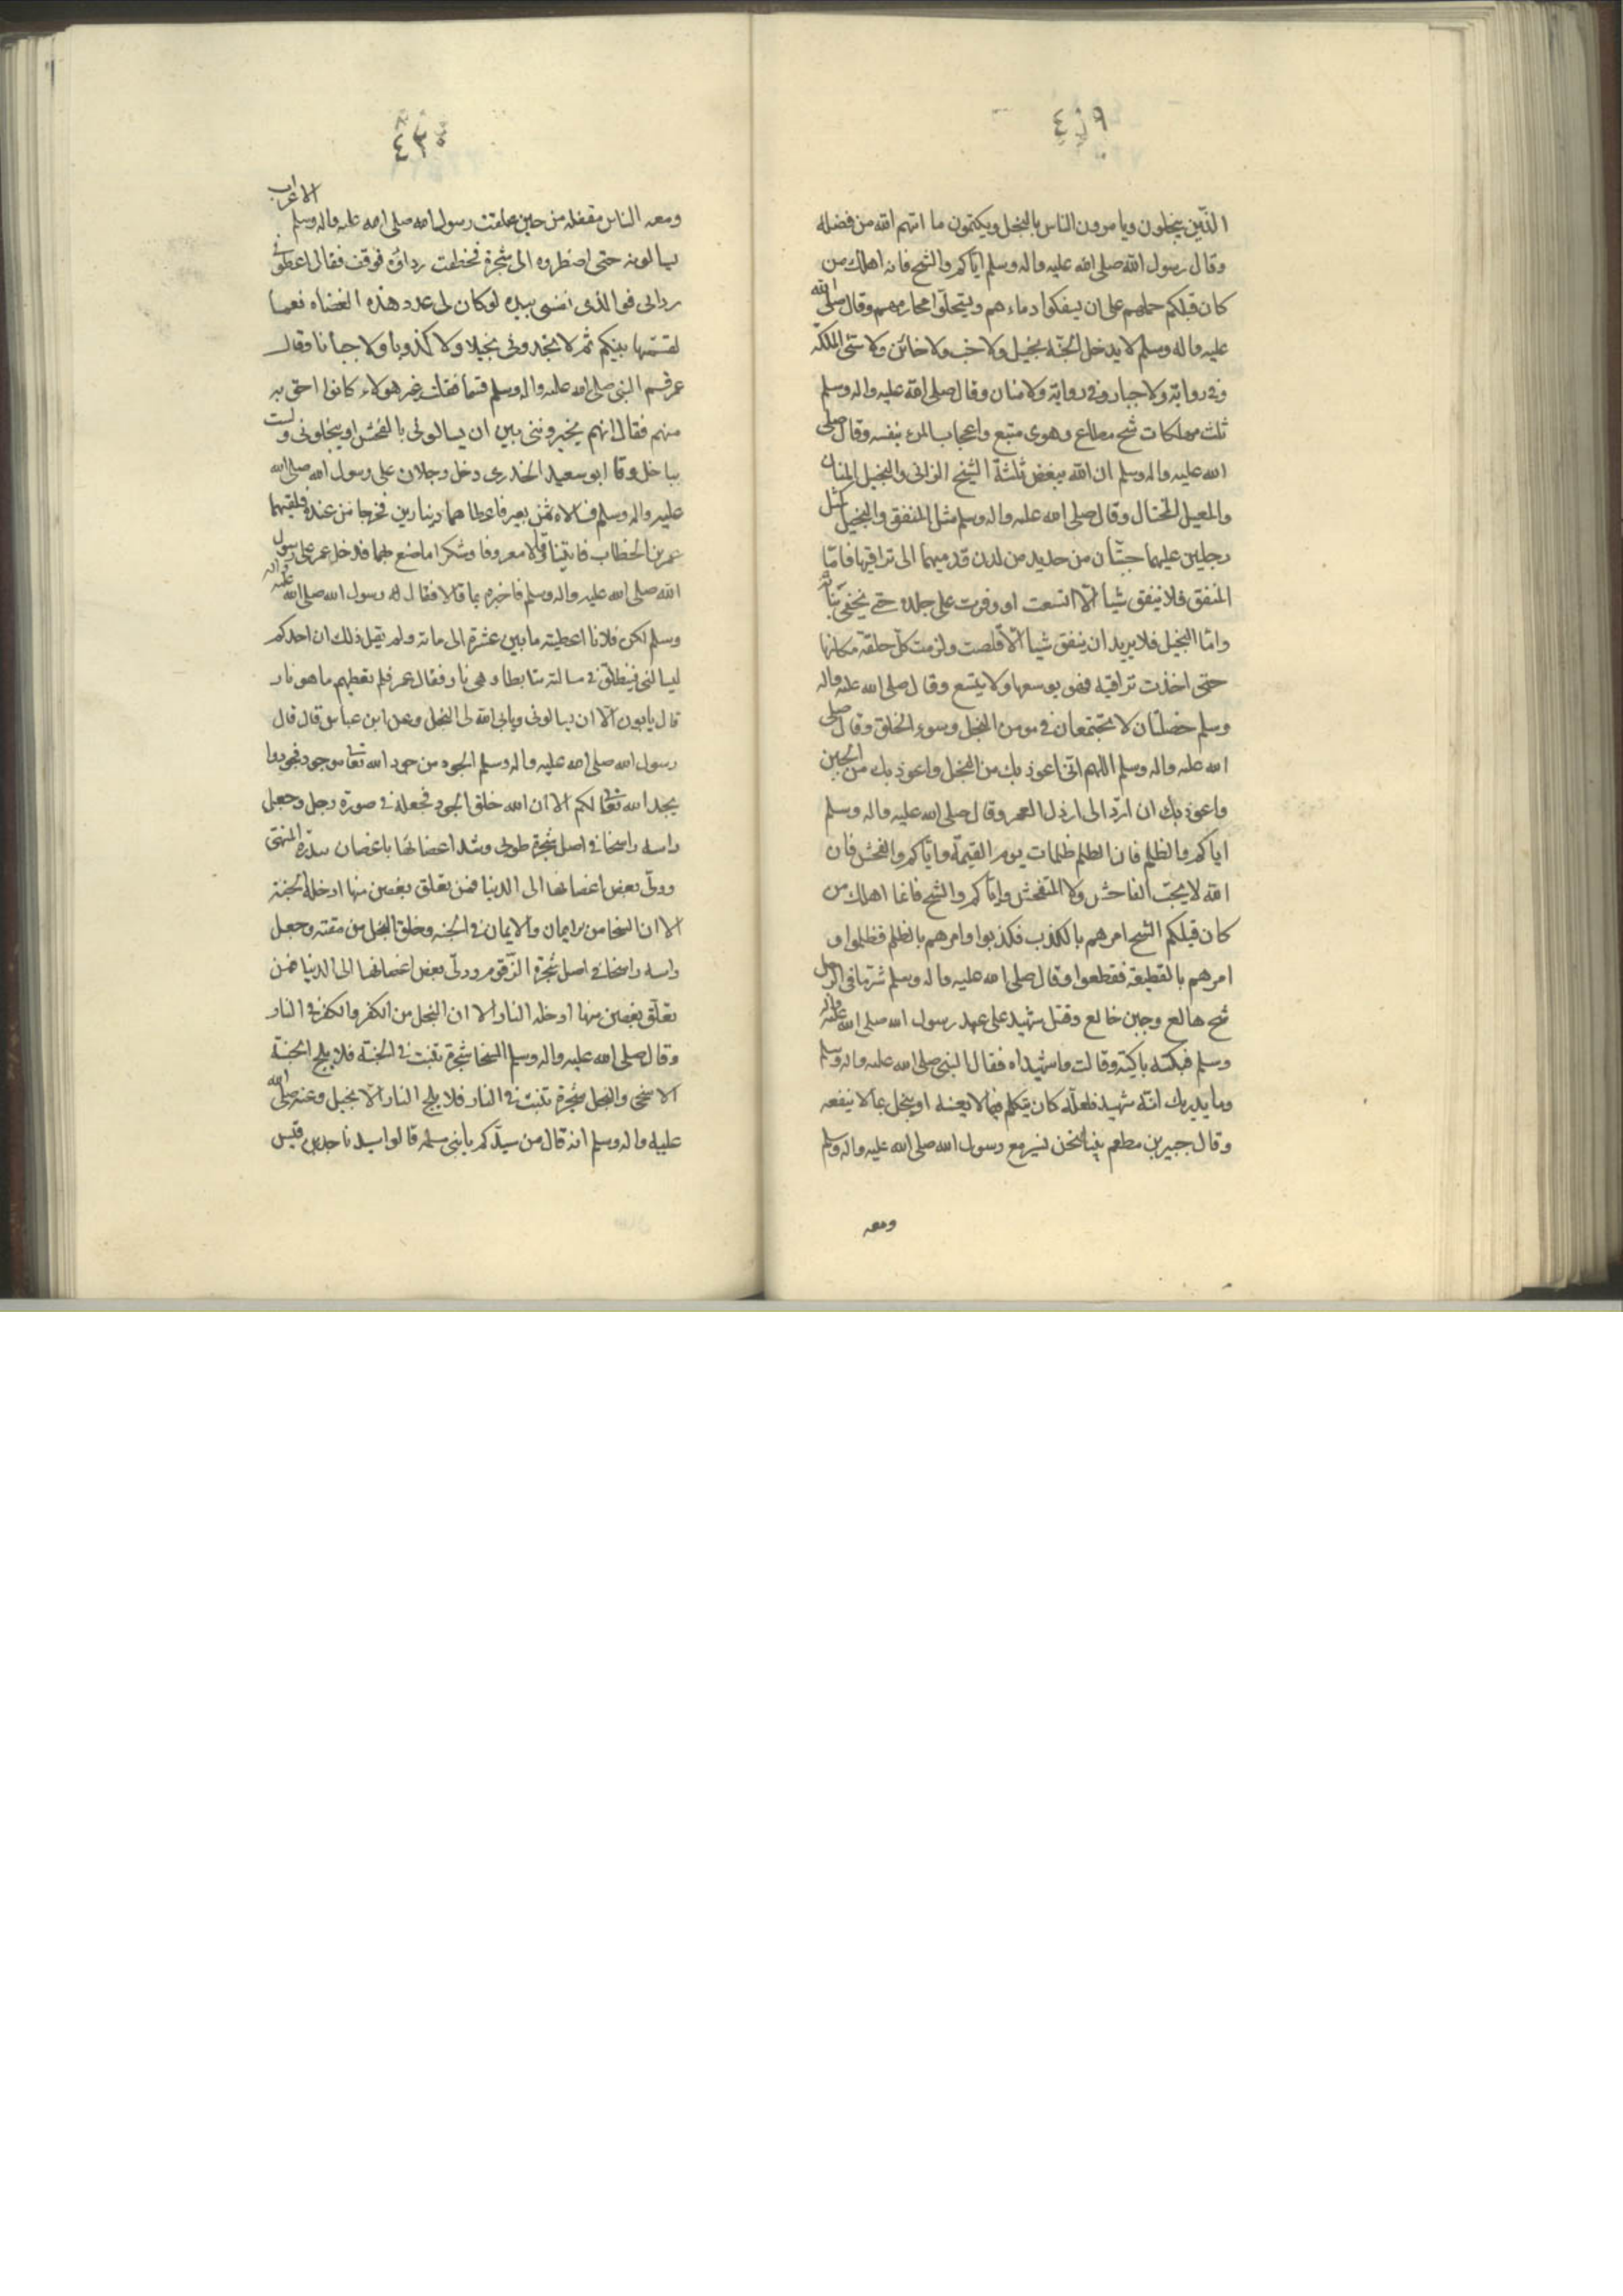 ٤١٩
الذين يبخلون ويامرون الناس بالبخل ويكتمون ما اتهم الله من فضله
وقال رسول الله صلى الله عليه واله وسلم اياكم والشح فانه اهلك من
كان قبلكم حملهم على ان يسفكوا دماءهم ويستحلوا محارمهم وقال صلى الله
عليه واله وسلم لا يدخل الجنة بخيل ولا خب ولا خائن ولا سيئ الملكة
وفي رواية ولا جبار وفي رواية ولا منان وقال صلى الله عليه واله وسلم
ثلث مهلكات شح مطاع وهوى متبع واعجاب المرء بنفسه وقال صلى
الله عليه واله وسلم ان الله يبغض ثلثة الشيخ الزاني والبخيل المنان
والمعيل المختال وقال صلى الله عليه واله وسلم مثل المنفق والبخيل كمثل
رجلين عليهما جبتان من حديد من لدن قدميهما الى تراقيها فاما
المنفق فلا ينفق شيأ الا اتسعت او وفرت على جلده حتى تخفى بنانه
واما البخيل فلا يريد ان ينفق شيأ الا قلصت ولزمت كل حلقة مكانها
حتى اخذت تراقيه فهو يوسعها ولا يتسع وقال صلى الله عليه واله
وسلم خصلتان لا تجتمعان في مومن البخل وسوء الخلق وقال صلى
الله عليه واله وسلم اللهم اني اعوذ بك من البخل واعوذ بك من الجبن
واعوذ بك ان ارد الى ارذل العمر وقال صلى الله عليه واله وسلم
اياكم والظلم فان الظلم ظلمات يوم القيمة واياكم والفحش فان
الله لا يحب الفاحش ولا المتفحش واياكم والشح فانما اهلك من
كان قبلكم الشح امرهم بالكذب فكذبوا وامرهم بالظلم فظلموا و
امرهم بالقطيعة فقطعوا وقال صلى الله عليه واله وسلم شر ما في الرجل
شح هالع وجبن خالع وقتل شهيد على عهد رسول الله صلى الله عليه واله
وسلم فبكته باكية وقالت واشهيداه فقال النبي صلى الله عليه واله وسلم
وما يدريك انه شهيد فلعله كان يتكلم فيما لا يعنيه او يبخل بما لا ينفعه
وقال جبير بن مطعم بينا نحن نسير مع رسول الله صلى الله عليه واله وسلم
ومعه
٤٢٠
ومعه الناس مقفله من حين علقت رسول الله صلى الله عليه واله وسلم الاعراب
يسالونه حتى اضطروه الى شجرة فخطفت رداؤه فوقف فقال اعطوني
ردائي فوالذي نفسي بيده لو كان لي عدد هذه العضاه نعما
لقسمتها بينكم ثم لا تجدوني بخيلا ولا كذوبا ولا جبانا وقال
عمر قسم النبي صلى الله عليه واله وسلم قسما فقلت غير هولاء كانوا احق به
منهم فقال انهم يخيروننى بين ان يسالونى بالفحش او يبخلونى ولست
بباخل وقا ابو سعيد الخدرى دخل رجلان على رسول الله صلى الله
عليه واله وسلم فسالاه ثمن بعير فاعطاهما دينارين فخرجا من عنده فلقيهما
عمر بن الخطاب فاثنيا وقالا معروفا وشكرا ما صنع لهما فدخل عمر على رسول
الله صلى الله عليه واله وسلم فاخبره بما قالا فقال له رسول الله صلى الله عليه واله
وسلم لكن فلانا اعطيته ما بين عشرة الى مائة ولم يقل ذلك ان احدكم
ليسالني فينطلق في مسالته متابطا وهي نار فقال عمر فلم تعطيهم ما هو نار
قال يابون الا ان يسالوني ويابى الله لي البخل وعن ابن عباس قال قال
رسول الله صلى الله عليه واله وسلم الجود من جود الله تعالى فجودوا
يجد الله تعالى لكم الا ان الله خلق الجود فجعله في صورة رجل وجعل
راسه راسخا في اصل شجرة طوبى وشد اغصانها باغصان سدرة المنتهى
ودلى بعض اغصانها الى الدنيا فمن تعلق بغصن منها ادخله الجنة
الا ان السخا من الايمان والايمان في الجنة وخلق البخل من مقته وجعل
راسه راسخا في اصل شجرة الزقوم ودلى بعض اغصانها الى الدنيا فمن
تعلق بغصن منها ادخله النار الا ان البخل من الكفر والكفر في النار
وقال صلى الله عليه واله وسلم السخا شجرة تنبت في الجنة فلا يلج الجنة
الا سخي والبخل شجرة تنبت في النار فلا يلج النار الا بخيل وعنه صلى الله
عليه واله وسلم انه قال من سيدكم يا بني سلمه قالوا سيدنا جد بن قيس